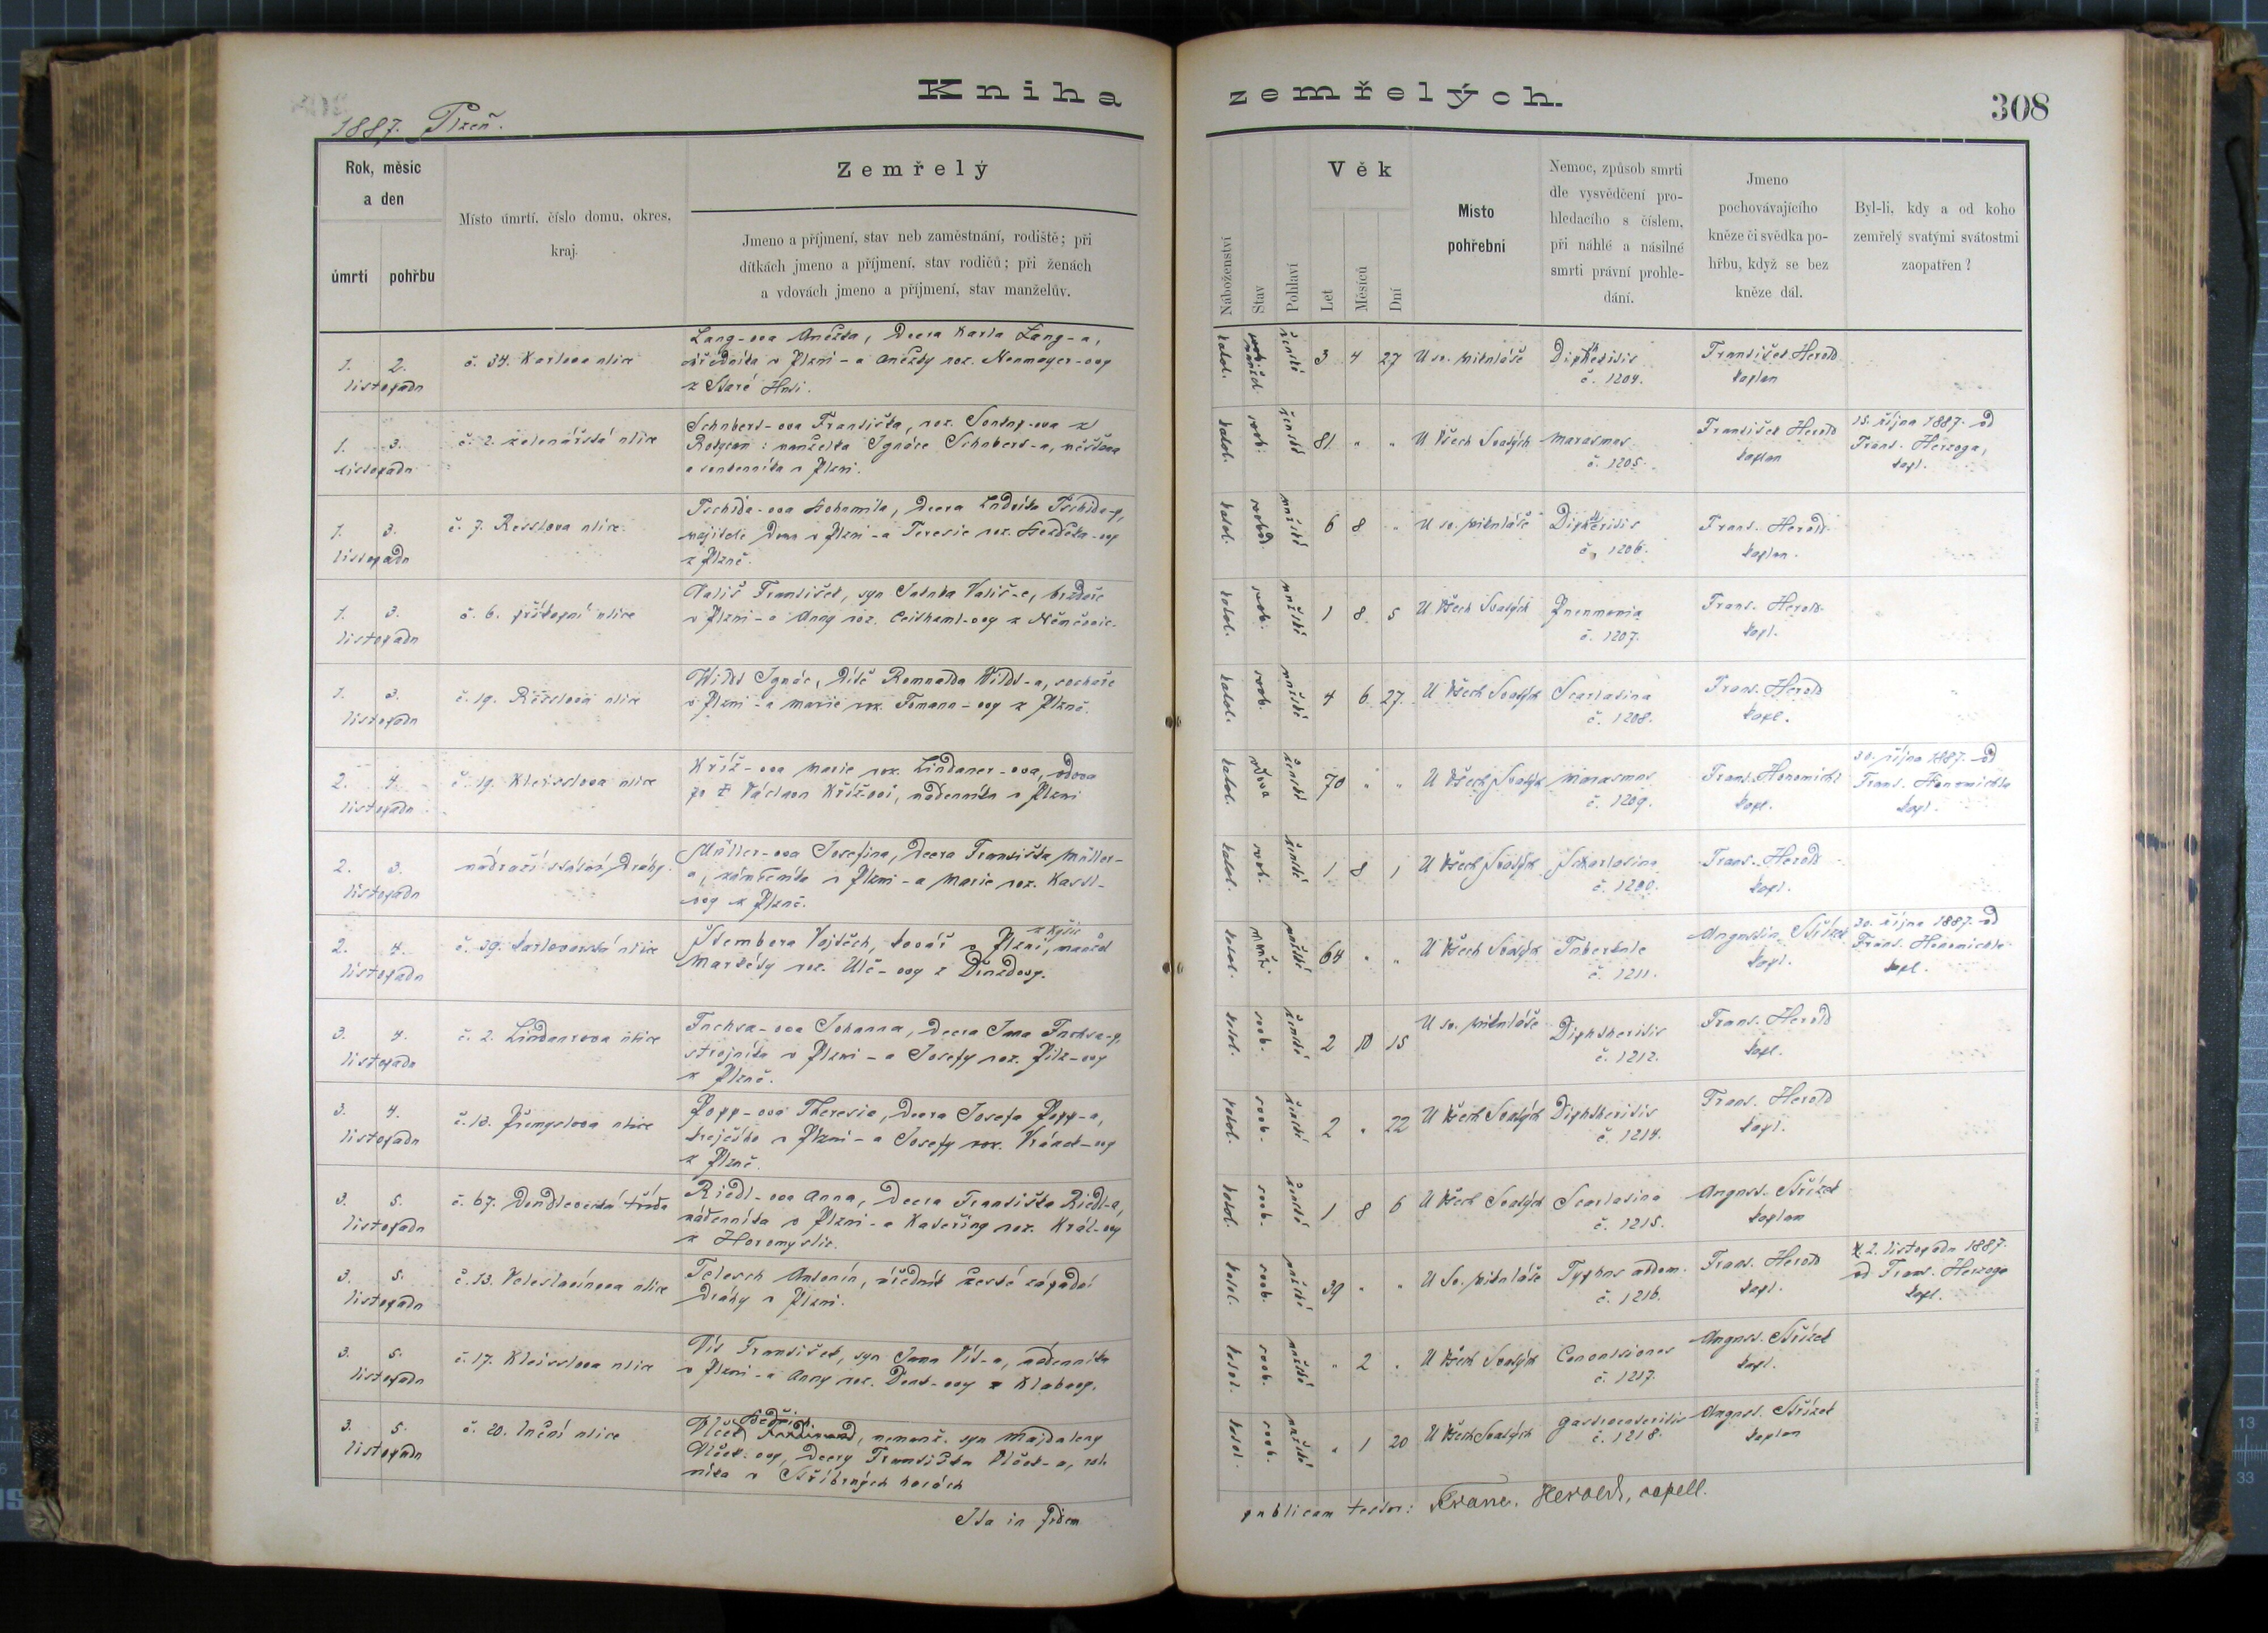 Kniha zemřelých.
308
1887. Plzeň.
Rok, měsíc
a den
úmrtí
pohřbu
Místo úmrtí, číslo domu, okres,
kraj.
Zemřelý
Jmeno a příjmení, stav neb zaměstnání, rodiště; při
dítkách jmeno a příjmení, stav rodičů; při ženách
a vdovách jmeno a příjmení, stav manželův.
Náboženství
Stav
Pohlaví
Věk
Let
Měsíců
Dní
Místo
pohřební
Nemoc, způsob smrti
dle vysvědčení pro-
hledacího s číslem,
při náhlé a násilné
smrti právní prohle-
dání.
Jmeno
pochovávajícího
kněze či svědka po-
hřbu, když se bez
kněze dál.
Byl-li, kdy a od koho
zemřelý svatými svátostmi
zaopatřen?
1. 2.
listopadu
č. 34. Karlova ulice
Lang-ova Anežka, dcera Karla Lang-a,
úředníka v Plzni - a Anežky roz. Neumayer-ovy
z Staré Huti.
katol. ženské 3 4 27 U sv. Mikuláše
Diphtheritis
č. 1204.
František Herold
kaplan
1. 3.
listopadu
č. 2. zelenářská ulice
Schubert-ova Františka, roz.
manželka Ignáce Schubert-a, měšťana
v Plzni.
katol. svob. ženské 81 " " U Všech Svatých
Marasmus
č. 1205.
František Herold
kaplan
15. října 1887. od
Frant. Herzoga,
kapl.
1. 3.
listopadu
č. 7. Resslova ulice
Tschida-ova Bohumila, dcera Ludvíka Tschida-y,
majitele domu v Plzni - a Terezie roz.
z Plzně.
katol. 6 8 " U sv. Mikuláše
Diphtheritis
č. 1206.
Frant. Herold
kaplan.
1. 3.
listopadu
č. 6. příkopní ulice
Vališ František, syn Jakuba Vališ-e,
v Plzni - a Anny roz.
katol. svob. mužské 1 8 5 U Všech Svatých
Pneumonia
č. 1207.
Frant. Herold
kapl.
1. 3.
listopadu
č. 19. ulice
Wildt Ignác, dítě Romualda Wildt-a, sochaře
v Plzni - a Marie roz. Tomann-ovy z Plzně.
katol. svob. mužské 4 6 27. U Všech Svatých
Scarlatina
č. 1208.
Frant. Herold
kapl.
2. 4.
listopadu
č. 19. Kleisslova ulice
Kříž-ova Marie roz. Lindauer-ova, vdova
po † Václavu Kříž-ovi, nádenníku v Plzni
katol. vdova ženské 70 " " U Všech Svatých
Marasmus
č. 1209.
Frant. Honomichl
kapl.
30. října 1887. od
Frant. Honomichla
kapl.
2. 3.
listopadu
nádraží státní dráhy
Müller-ova Josefina, dcera Františka Müller-
a, zámečníka v Plzni - a Marie roz. Kassl-
ovy z Plzně.
katol. svob. ženské 1 8 1 U Všech Svatých
Skarlatina
č. 1210.
Frant. Herold
kapl.
2. 4.
listopadu
č. 39. karlovarská ulice
z Kyšic
Štembera Vojtěch, kovář v Plzni, manžel
Markéty roz. Ulč-ovy z Druzdovy.
katol. mužské 64 " " U Všech Svatých
Tuberkule
č. 1211.
Augustin Střízek
kapl.
30. října 1887. od
Frant. Honomichla
kapl.
3. 4.
listopadu
č. 2. Lindauerova ulice
Fuchsa-ova Johanna, dcera Jana Fuchsa-y,
strojníka v Plzni - a Josefy roz. Pilz-ovy
z Plzně.
katol. svob. ženské 2 10 15 U sv. Mikuláše
Diphtheritis
č. 1212.
Frant. Herold
kapl.
3. 4.
listopadu
č. 13. Přemyslova ulice
Popp-ova Theresia, dcera Josefa Popp-a,
krejčího v Plzni - a Josefy roz. Vránek-ovy
z Plzně.
katol. svob. ženské 2 " 22 U Všech Svatých
Diphtheritis
č. 1214.
Frant. Herold
kapl.
3. 5.
listopadu
č. 67. Doudlevecká třída
Riedl-ova Anna, dcera Františka Riedl-a,
nádenníka v Plzni - a Kateřiny roz. Král-ovy
z Horomyslic.
katol. svob. ženské 1 8 6 U Všech Svatých
Scarlatina
č. 1215.
August. Střízek
kaplan
3. 5.
listopadu
č. 13. Veleslavínova ulice
Telesch Antonín, úředník české západní
dráhy v Plzni.
katol. svob. mužské 39 " " U Sv. Mikuláše
Typhus abdom.
č. 1216.
Frant. Herold
kapl.
2. listopadu 1887.
od Frant. Herzoga
kapl.
3. 5.
listopadu
č. 17. Kleisslova ulice
Vít František, syn Jana Vít-a, nádenníka
v Plzni - a Anny roz. z Klabavy.
katol. svob. mužské " 2 " U Všech Svatých
Convulsiones
č. 1217.
August. Střízek
kapl.
3. 5.
listopadu
č. 20. luční ulice
Bedřich
Vlček Ferdinand, nemanž. syn Majdaleny
Vlček-ovy, dcery Františka Vlček-a, rol-
níka v Stříbrných horách
katol. svob. mužské " 1 20 U Všech Svatých
Gastroenteritis
č. 1218.
August. Střízek
kaplan
Ita in fidem publicam testor: Franc. Herold, capell.